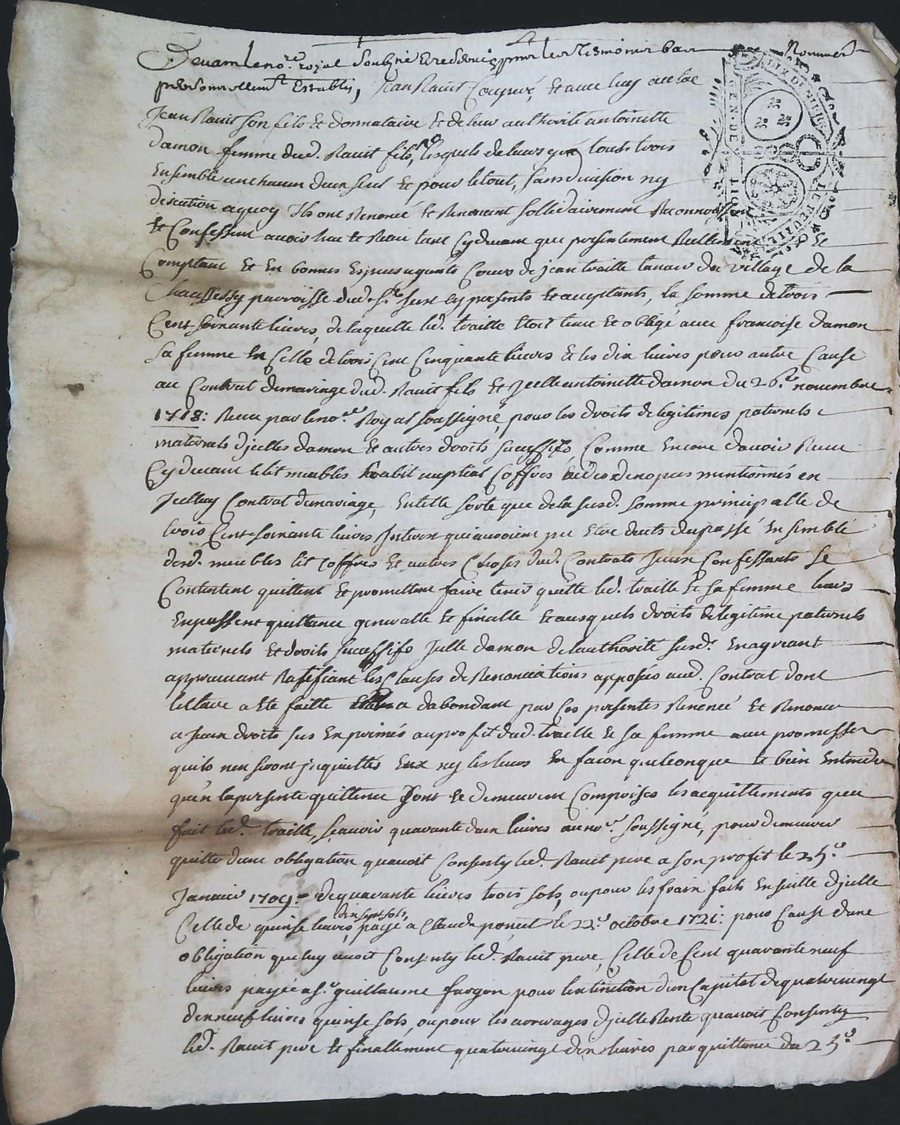 Devant le no.re royal soubsigné et presens les tesmoins bas nommes
personnellem.t establis, Jean Ravit et avec luy
Jean Ravit son fils et donnataire et de leur authorité antoinette
damon femme dud. Ravit fils, lesquels de leurs gré tous trois
Ensemble un chacun deux seul et pour le tout, sans division ny
discution a quoy Ils ont Renoncé et Renoncent sollidairement Reconnoissent
et Confessent avoir heu et Receu tant cy devant que presentement Reellement et
Comptant et En bonnes Especes ayants Cours de jean traille du village de la
Chaussessy parroisse dud. presents et acceptants, la somme de trois
Cent soixante livres, de laquelle led. traille Etoit tenu et obligé avec francoise damon
sa femme En Celle de trois Cent Cinquante livres et les dix livres pour autre Cause
au Contrat de mariage dud. Ravit fils et Jcelle antoinette damon du 26.e novembre
1718: Receu par le no.re Royal soussigné, pour les droits de legitimes paternels
maternels d'jcelles damon et autres droits successifs Comme Encore davoir Receu
Cy devant le lit meubles habit nuptial Coffres mentionnés en
Jcelluy Contrat de mariage, En telle sorte que de la susd. somme principalle de
trois Cent soixante livres Interest qui auroient peu Etre deubs du passé Ensemble
desd. meubles lit Coffres et autres Choses dud. Contrats Jceux Confessants se
Contentent quittent et promettent faire tenir quitte led. traille et sa femme leurs
En passent quittance generalle et finalle et ausquels droits de legitime paternels
maternels et droits successifs Jcelle damon de lauthorité susd. En agreant
approuvant Ratifiant les Clauses de Renonciations apposées aud. Contrat dont
lecture a Eté faitte a dabondant par Ces presentes Renoncé et Renonce
a jceux droits sus Exprimés au profit dud. traille et sa femme avec promesse
quils nen seront jnquiettés Eux ny les leurs En facon quelconque et bien Entendu
quen la presente quittance sont et demeurent Comprises les acquittements qua
fait led. traille, scavoir quarante deux livres au no.re soussigné, pour demeurer
quitte dune obligation quavoit Consenty led. Ravit pere a son profit le 25.e
Janvier 1709: de quarante livres trois sols, ou pour les frais faits En suitte djcelle
Celle de quinse livres dix sept sols, payé a Claude le 22.e octobre 1721: pour Cause dune
obligation que luy avoit Consenty led. Ravit pere, Celle de Cent quarante neuf
livres payée a s.r guillaume fargon pour lextinction dun Capital de quatre vingt
dix neuf livres quinse sols, ou pour les arrerages djcelle Rente quavoit Consenty
led. Ravit pere et finallement quatre vingt dix livres par quittance du 25.e